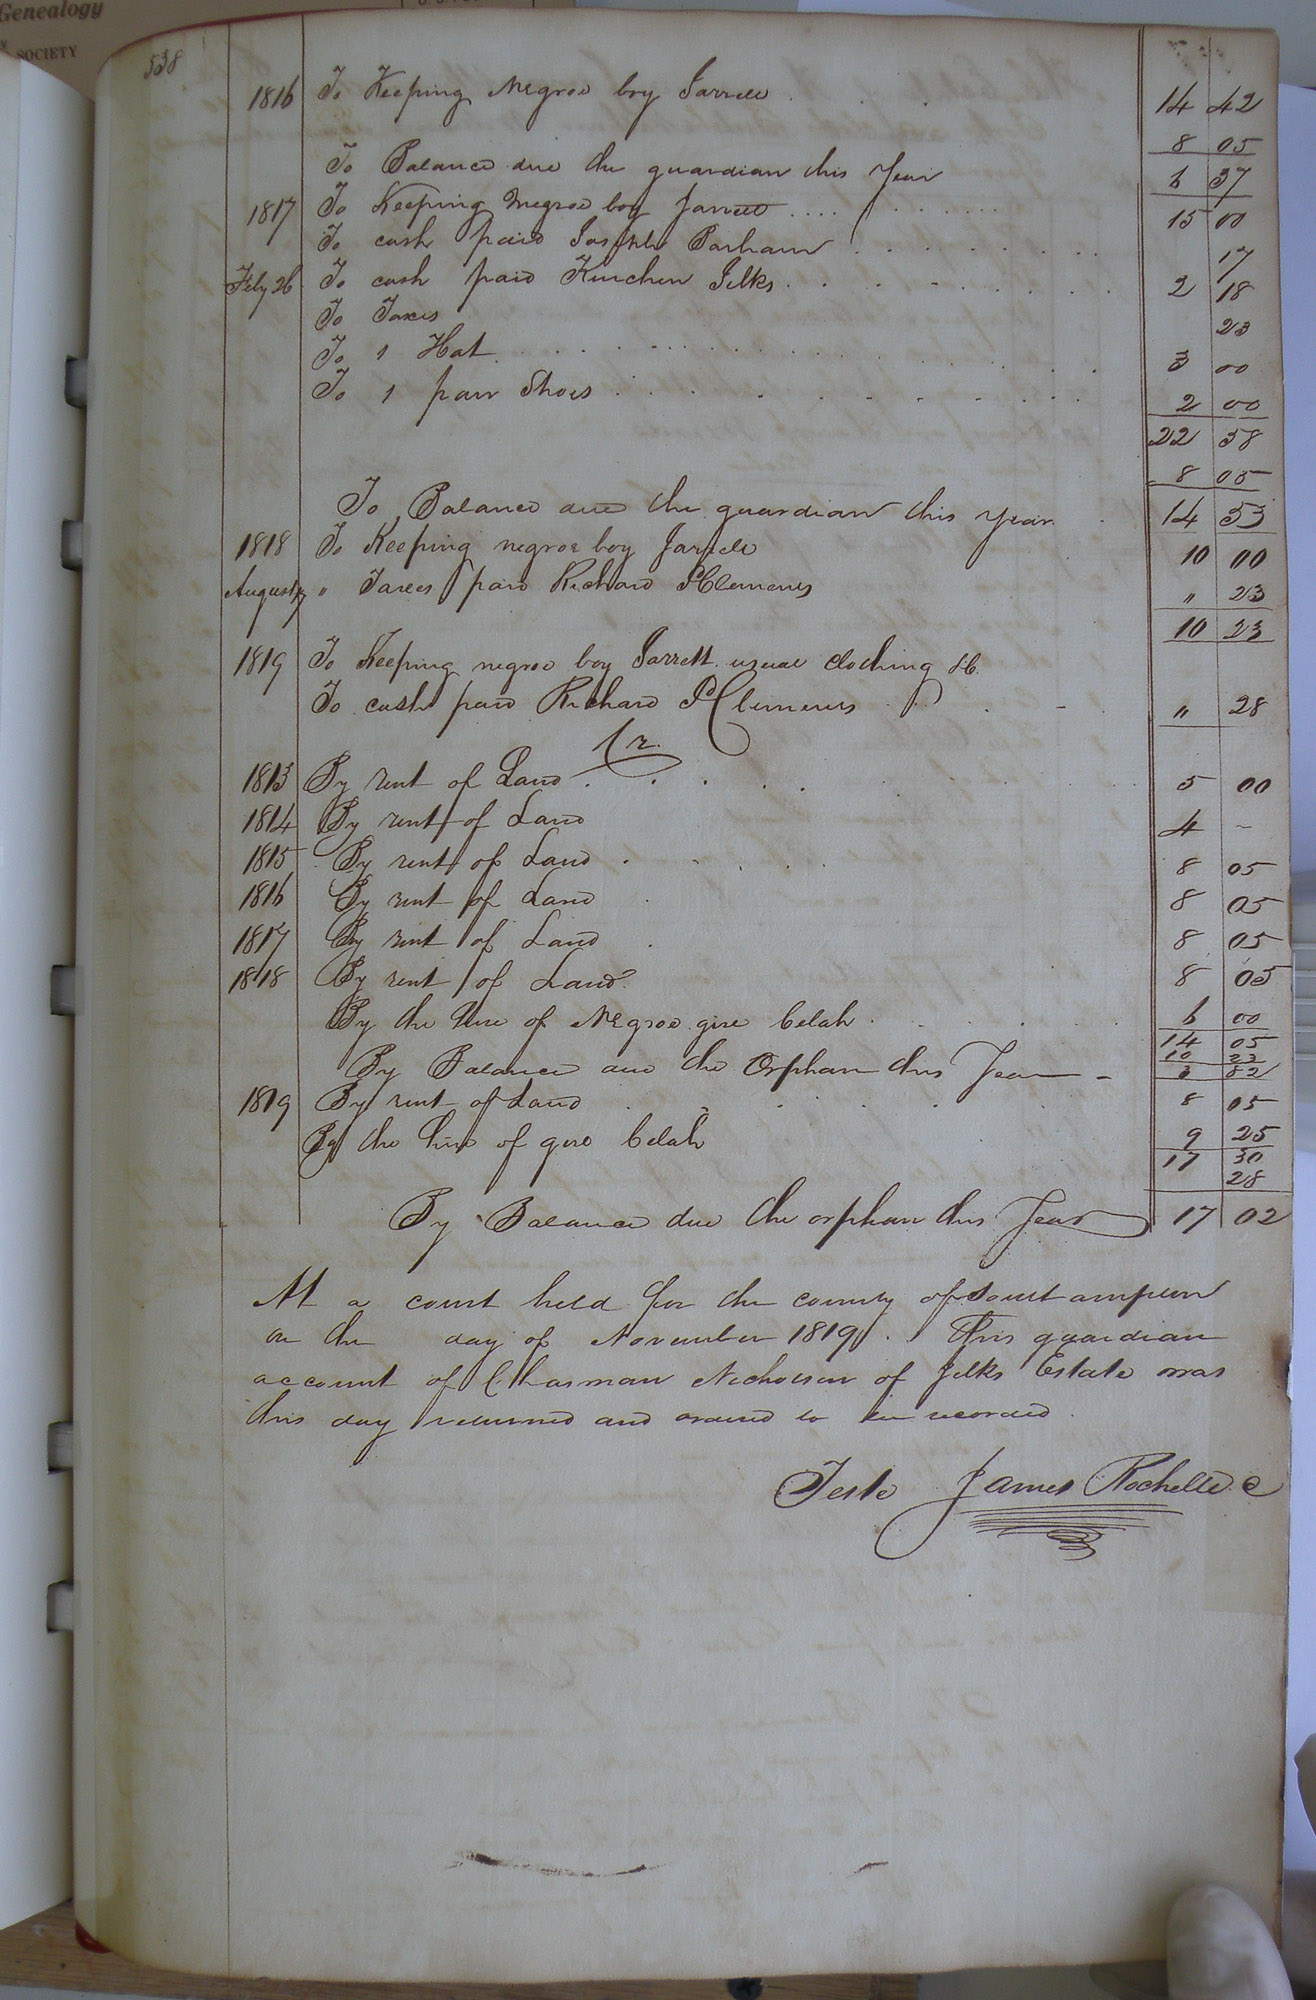 Genealogy
SOCIETY
538
1816 To Keeping Negroe boy Jarrett . . . 14 42
8 05
To Balance due the guardian this Year 6 37
1817 To Keeping Negroe boy Jarrett . . . . 15 00
To cash paid Joseph Parham . . . . 17
Feby 26 To cash paid Kinchen Jelks . . . . 2 18
To Taxes 23
To 1 Hat . . . . 3 00
To 1 pair Shoes . . . . 2 00
22 58
8 05
To Balance due the guardian this year 14 53
1818 To Keeping negroe boy Jarrett 10 00
August " Taxes paid Richard P Clements " 23
10 23
1819 To Keeping negroe boy Jarrett usual clothing &c.
To cash paid Richard P Clements . . " 28
Cr.
1813 By rent of Land . . . . 5 00
1814 By rent of Land 4 –
1815 By rent of Land . . . . 8 05
1816 By rent of Land . 8 05
1817 By rent of Land . 8 05
1818 By rent of Land 8 05
By the hire of Negroe girl Celah . . . 6 00
14 05
10 23
By Balance due the Orphan this Year 3 82
1819 By rent of Land . . . . 8 05
By the hire of girl Celah 9 25
17 30
28
By Balance due the orphan this Year 17 02
At a court held for the county of Southampton
on the day of November 1819. This guardian
account of Nicholson of Jelks Estate was
this day returned and ordered to be recorded
Teste James Rochelle C